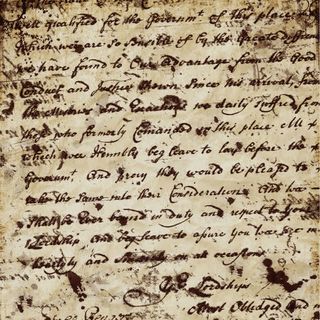 well qualified for the Governmt. of this place
Which we are so sensible of by the Greate difference
we have found to Our advantage from the Good
Conduct and Justice shown Since his arrival, from
the Miseries and we daily suffered from
those who formerly Comanded at this place All
which we Humbly beg leave to lay before the
Governmt. And pray they would be pleased to
take the same into their Consideration And we
Shall be Ever bound in Duty and respect to Your
Lordship And beg leave to assure you we are
and on all occasions
Yr. Lordships
Most Obliged and